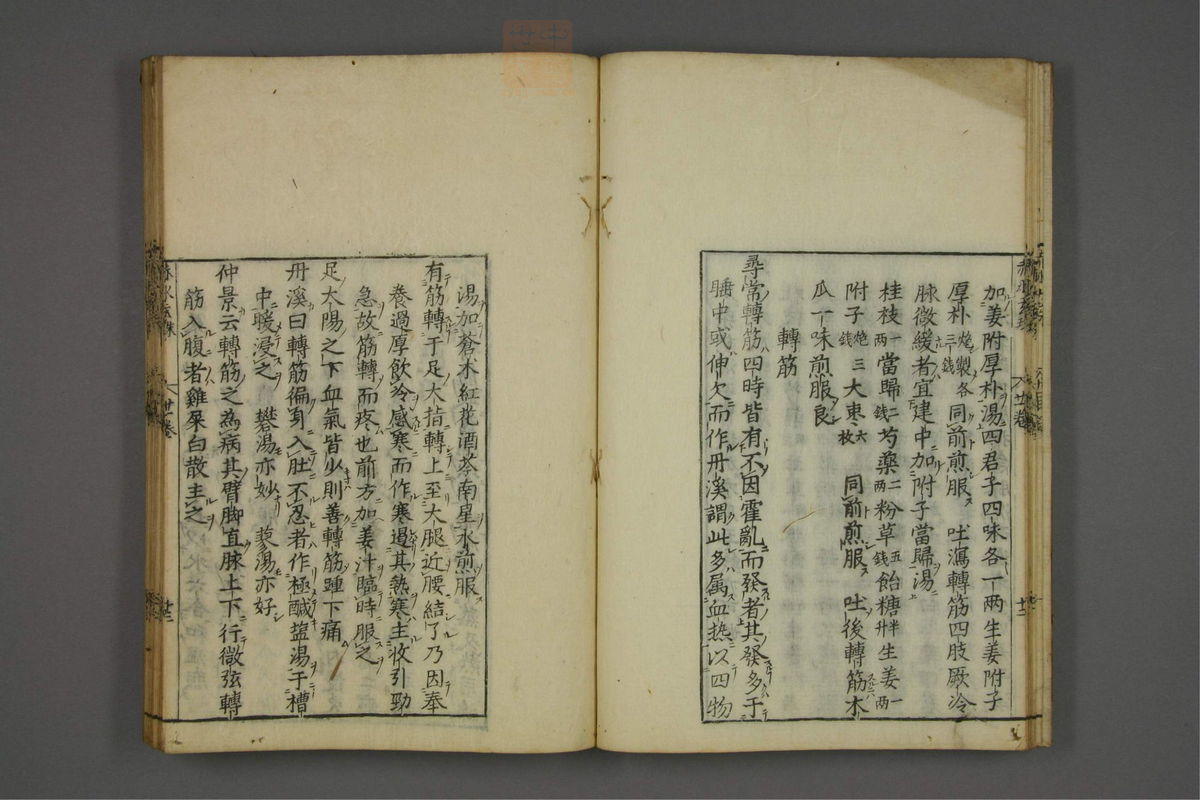 加姜附厚朴湯四君子四味各一兩生姜附子
厚朴炮製各三錢同前煎服 吐瀉轉筋四肢厥冷
脉微緩者宜建中加附子當歸湯
桂枝一兩當歸二錢芍藥二兩粉草五錢飴糖半升生姜一兩
附子炮三錢大棗六枚 同前煎服 吐後轉筋木
瓜一味煎服良
轉筋
尋常轉筋四時皆有不因霍亂而發者其發多于
睡中或伸欠而作丹溪謂此多属血热以四物
湯加蒼木紅花酒芩南星水煎服
有筋轉于足大指轉上至大腿近腰結了乃因奉
養過厚飲冷感寒而作寒遏其熱寒主收引勁
急故筋轉而疼也前方加姜汁臨時服之
足太陽之下血氣皆少則善轉筋踵下痛
丹溪曰轉筋徧身入肚不忍者作極醎塩湯于槽
中暖浸之 礬湯亦妙 蓼湯亦好
仲景云轉筋之為病其臂脚直脉上下行微弦轉
筋入腹者雞屎白散主之